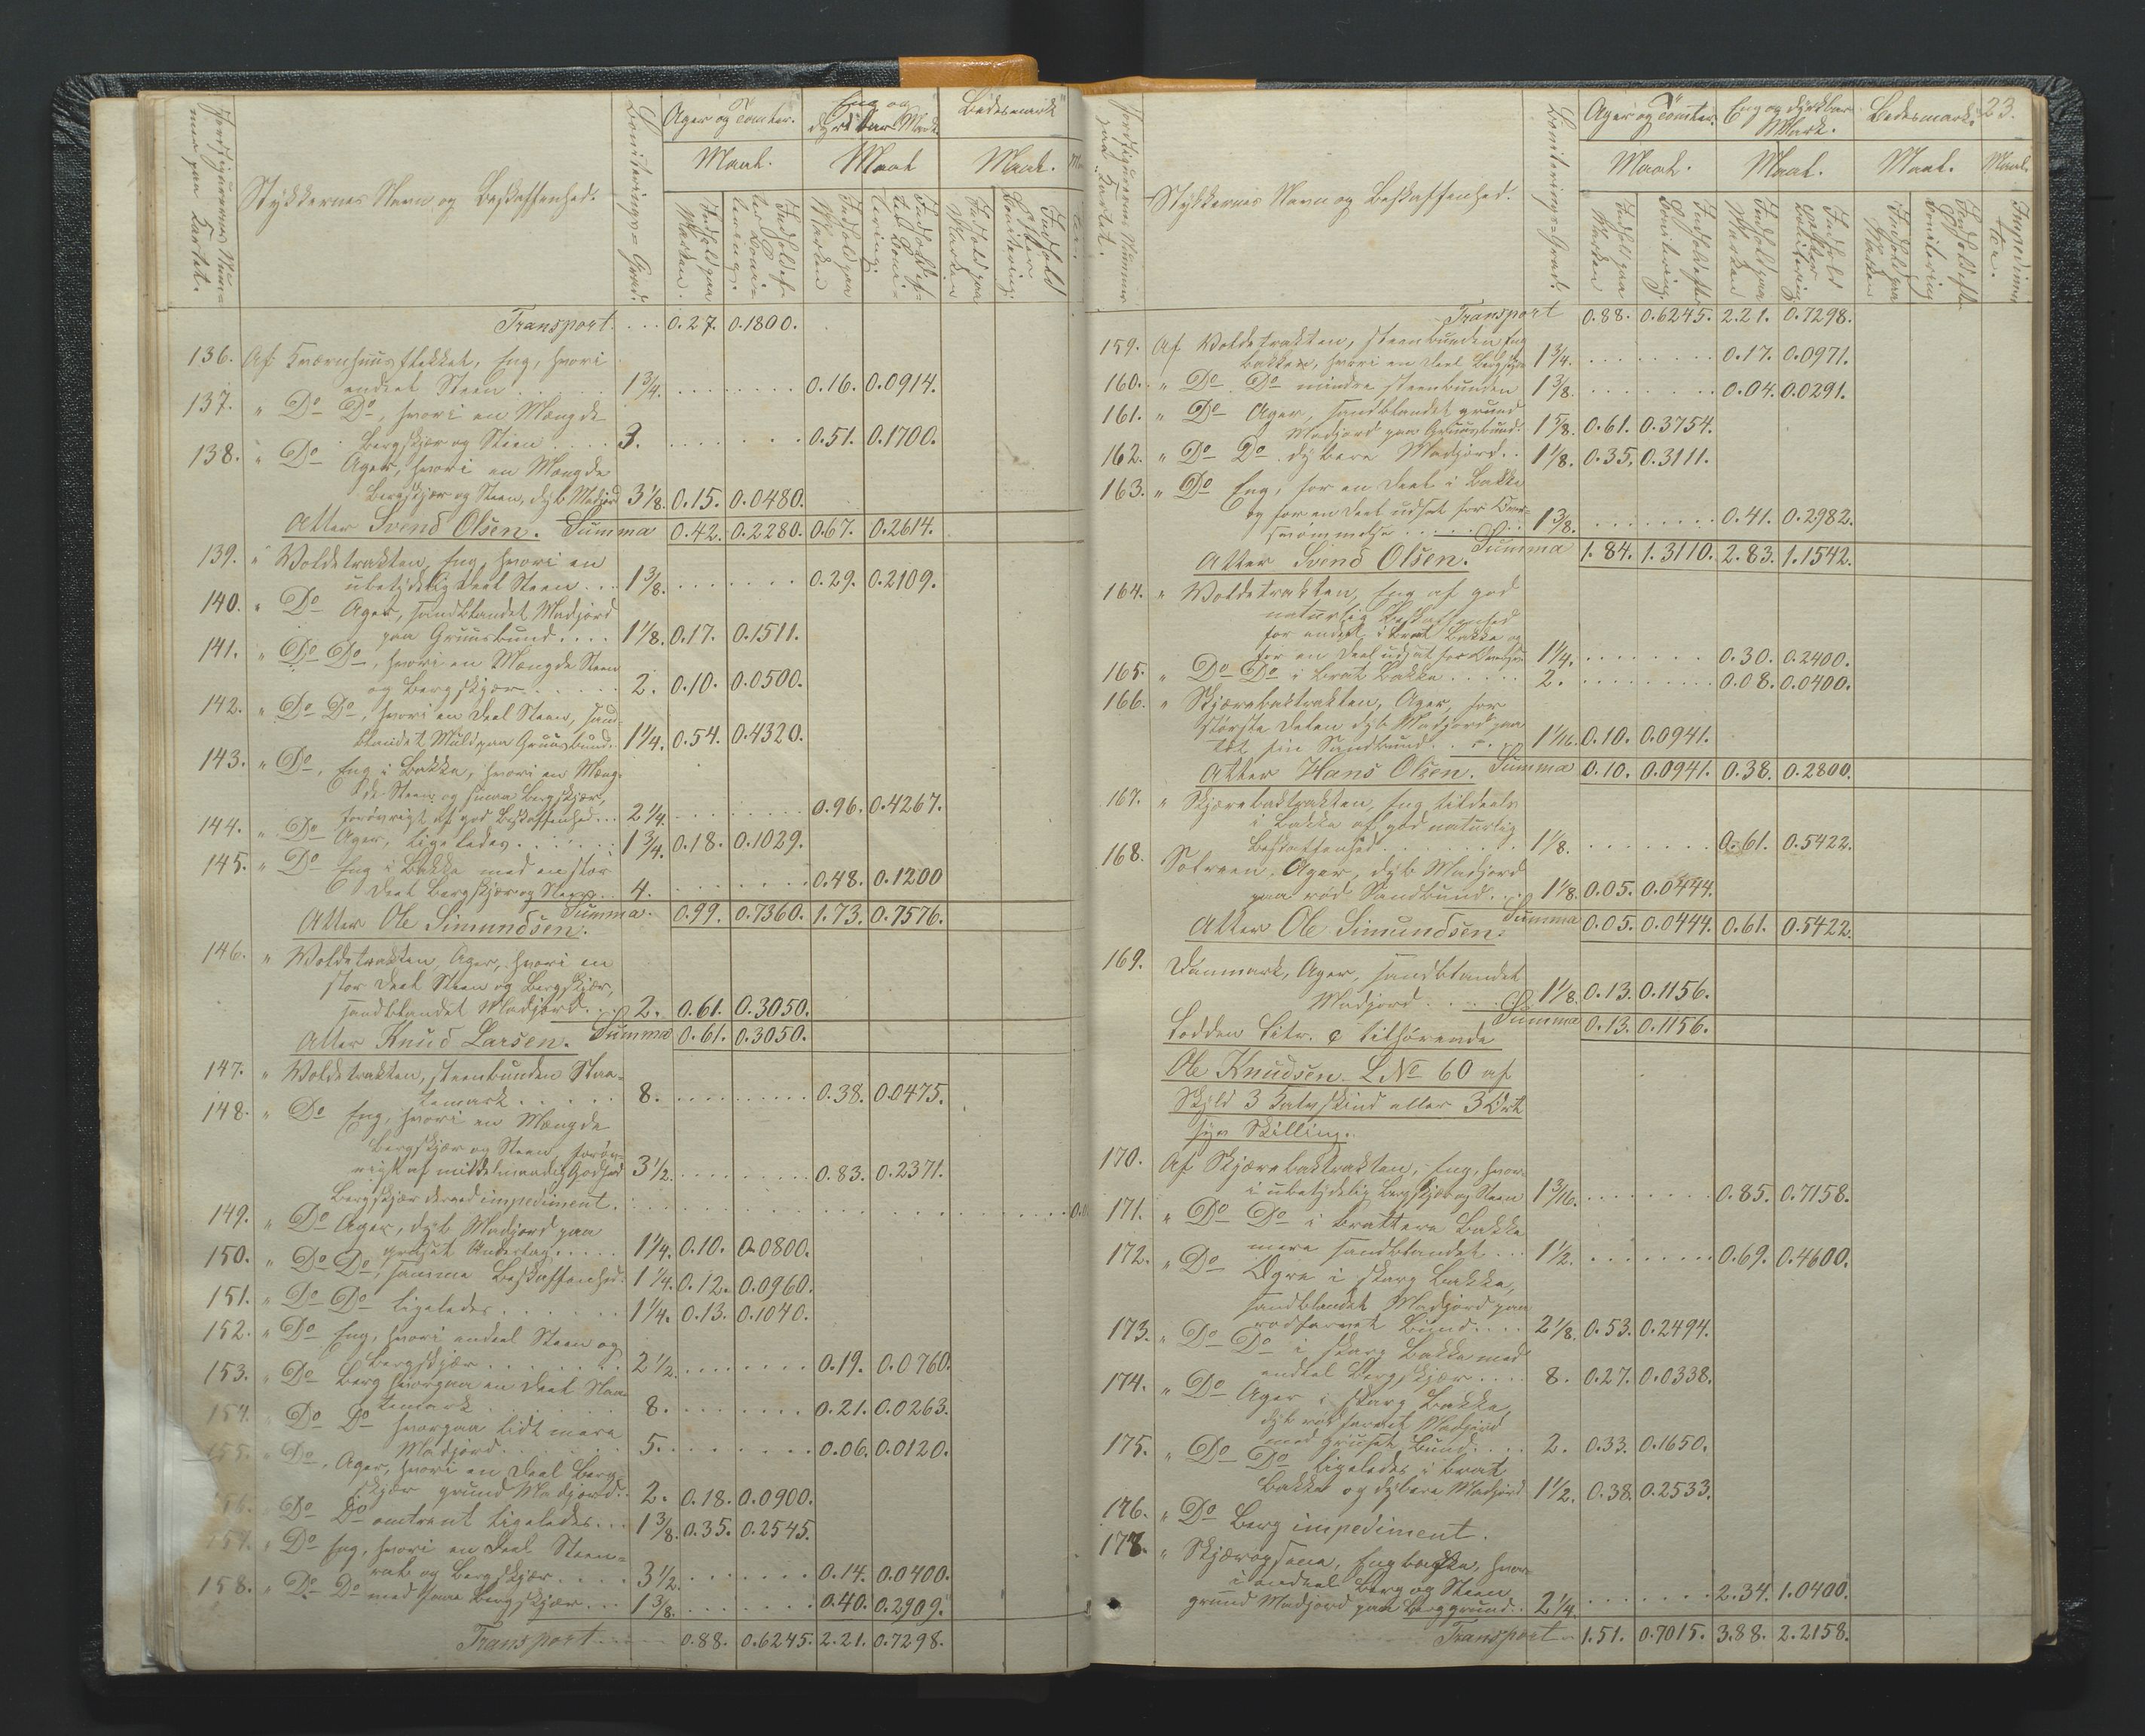 Stykkernes Navn og Beskaffenhed.
Boniterings-Grad.
Ager og Tomter.
Eng og dyrkbar Mark
Bedesmark
Maal.
Maal
Maal.
Transport . . . 0.27. 0.1800.
136. Af Kværnhuusflekket, Eng, hvori
endeel Steen . . . . 1 3/4. . . . 0.16. 0.0914.
137. " Do Do, hvori en Mængde
Bergskjær og Steen . . . . 3. . . . 0.51. 0.1700.
138. " Do Ager, hvori en Mængde
Bergskjær og Steen, dyb Madjord 3 1/8. 0.15. 0.0480.
Atter Svend Olsen. Summa 0.42. 0.2280. 0.67. 0.2614.
139. " Woldetrakten, Eng, hvori en
ubetydelig Deel Steen . . . 1 3/8. . . . 0.29. 0.2109.
140. " Do Ager, sandblandet Madjord
paa Gruusbund . . . . 1 1/8. 0.17. 0.1511.
141. " Do Do, hvori en Mængde Steen
og Bergskjær . . . . 2. 0.10. 0.0500.
142. " Do Do, hvori en Deel Steen, sand-
blandet Muld paa Gruusbund. 1 1/4. 0.54. 0.4320.
143. " Do, Eng i Bakke, hvori en Mæng-
de Steen og smaa Bergskjær,
forøvrigt af god Beskaffenhed . . . 2 1/4. . . . 0.96. 0.4267.
144. " Do Ager, ligeledes . . . . 1 3/4. 0.18. 0.1029.
145. " Do Eng i Bakke med en stor
Deel Bergskjær og Steen . . 4. . . . 0.48. 0.1200
Summa. 0.99. 0.7360. 1.73. 0.7576.
Atter Ole Simundsen.
146. " Woldetrakten, Ager, hvori en
stor Deel Steen og Bergskjær,
sandblandet Madjord . . . 2. 0.61. 0.3050.
Atter Knud Larsen. Summa 0.61. 0.3050.
147. " Woldetrakten, steenbunden Slaa-
temark . . . . 8. . . . 0.38. 0.0475.
148. " Do Eng, hvori en Mængde
Bergskjær og Steen, forøv-
rigt af middelmaadig Godhed 3 1/2. . . . 0.83. 0.2371.
Bergskjær derved impediment.
149. " Do Ager, dyb Madjord paa
gruset Underlag . . . . 1 1/4. 0.10. 0.0800.
150. " Do Do, samme Beskaffenhed. 1 1/4. 0.12. 0.0960.
151. " Do Do ligeledes . . . . 1 1/4. 0.13. 0.1040.
152. " Do Eng, hvori endeel Steen og
Bergskjær . . . . 2 1/2. . . . 0.19. 0.0760.
153. " Do Berg hvorpaa en Deel Slaa-
temark . . . . 8. . . . 0.21. 0.0263.
154. " Do Do hvorpaa lidt mere
Madjord . . . . 5. . . . 0.06. 0.0120.
155. " Do, Ager, hvori en Deel Berg-
skjær grund Madjord . . 2. 0.18. 0.0900.
156. " Do Do omtrent ligeledes . . . 1 3/8. 0.35. 0.2545.
157. " Do Eng, hvori en Deel Steen-
rab og Bergskjær . . . . 3 1/2. . . . 0.14. 0.0400.
158. " Do Do med faae Bergskjær . . . 1 3/8. . . . 0.40. 0.2909.
Transport . . . 0.88. 0.6245. 2.21. 0.7298.
23.
Stykkernes Navn og Beskaffenhed.
Boniterings-Grad.
Ager og Tomter.
Eng og dyrkbar Mark.
Bedesmark.
Maal.
Maal.
Maal.
Maal.
Transport 0.88. 0.6245. 2.21. 0.7298.
159. Af Woldetrakten, steenbunden Eng
bakken, hvori en Deel Bergskjær 1 3/4. . . . 0.17. 0.0971.
160. " Do Do mindre steenbunden 1 3/8. . . . 0.04. 0.0291.
161. " Do Ager, sandblandet grund
Madjord paa Gruusbund. 1 5/8. 0.61. 0.3754.
162. " Do Do dybere Madjord. . 1 1/8. 0.35. 0.3111.
163. " Do Eng, for en Deel i Bakke
og for en Deel udsat for Over-
svømmelse . . . 1 3/8. . . . 0.41. 0.2982.
Summa 1.84. 1.3110. 2.83. 1.1542.
Atter Svend Olsen.
164. " Woldetrakten, Eng af god
naturlig Beskaffenhed
for endeel i brat Bakke og
for en Deel udsat for 1 1/4. . . . 0.30. 0.2400.
165. " Do Do i brat Bakke . . . . 2. . . . 0.08. 0.0400.
166. " Skjærebaktrakten, Ager, for
største Delen dyb Madjord paa
tæt fiin Sandbund . . . . 1 1/16. 0.10. 0.0941.
Atter Hans Olsen. Summa 0.10. 0.0941. 0.38. 0.2800.
167. " Skjærebaktrakten, Eng tildeels
i Bakke af god naturlig
Beskaffenhed . . . . 1 1/8. . . . 0.61. 0.5422.
168. Ager, dyb Madjord
paa rød Sandbund . . . 1 1/8. 0.05. 0.0444.
Summa 0.05. 0.0444. 0.61. 0.5422.
Atter Ole Simundsen.
169. Danmark, Ager, sandblandet
Madjord . . . . 1 1/8. 0.13. 0.1156.
Summa 0.13. 0.1156.
Lodden Litr. C tilhørende
Ole Knudsen L No 60 af
Skyld 3 Kalvskind eller 3 Ort
syv Skilling.
170. Af Skjærebaktrakten, Eng, hvor-
i ubetydelig Bergskjær og Steen 1 3/16. . . . 0.85. 0.7158.
171. " Do Do i brattere Bakke
mere sandblandet . . . 1 1/2. . . . 0.69. 0.4600.
172. " Do Agre i skarp Bakke,
sandblandet Madjord paa
rødfarvet Bund . . . . 2 1/8. 0.53. 0.2494.
173. " Do Do i skarp Bakke med
endeel Bergskjær . . . . 8. 0.27. 0.0338.
174. " Do Ager i skarp Bakke,
dyb rødfarvet Madjord
med gruset Bund . . . . 2. 0.33. 0.1650.
175. " Do Do ligeledes i brat
Bakke og dybere Madjord 1 1/2. 0.38. 0.2533.
176. " Do Berg impediment.
178. " Eng bakke, hvor-
i endeel Berg og Steen
grund Madjord paa Berggrund . . 2 1/4. . . . 2.34. 1.0400.
Transport 1.51. 0.7015. 3.88. 2.2158.